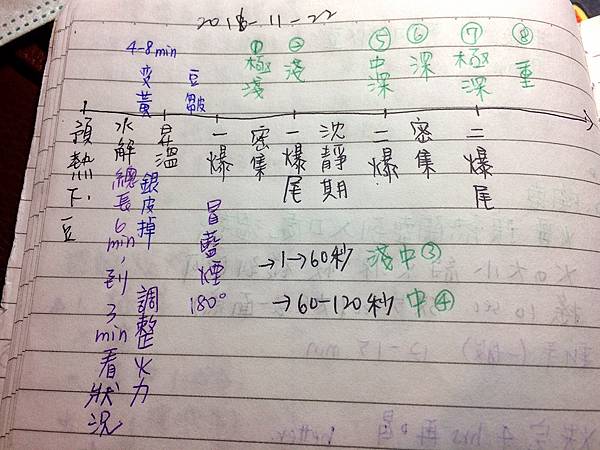 2018-11-22
4-8min
變黃
豆皺
① 極淺
② 淺
⑤ 中深
⑥ 深
⑦ 極深
⑧ 重
預熱下豆
水解
總長6min,到3min看狀況
銀皮掉
調整火力
昇溫
一爆
冒藍煙
180°
密集
一爆尾
沈靜期
二爆
密集
二爆尾
→1→60秒 淺中③
→60-120秒 中④